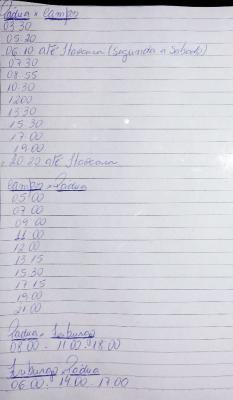 Pádua x Campos
03:30
05:20
06:10 até Itaocara (segunda a Sábado)
07:30
08:55
10:30
12:00
13:30
15:30
17:00
19:00
20:20 até Itaocara
Campos x Pádua
05:00
07:00
09:00
11:00
12:00
13:15
15:30
17:15
19:00
21:00
Pádua x Friburgo
08:00 - 11:00 - 18:00
Friburgo x Pádua
06:00 - 14:00 - 17:00